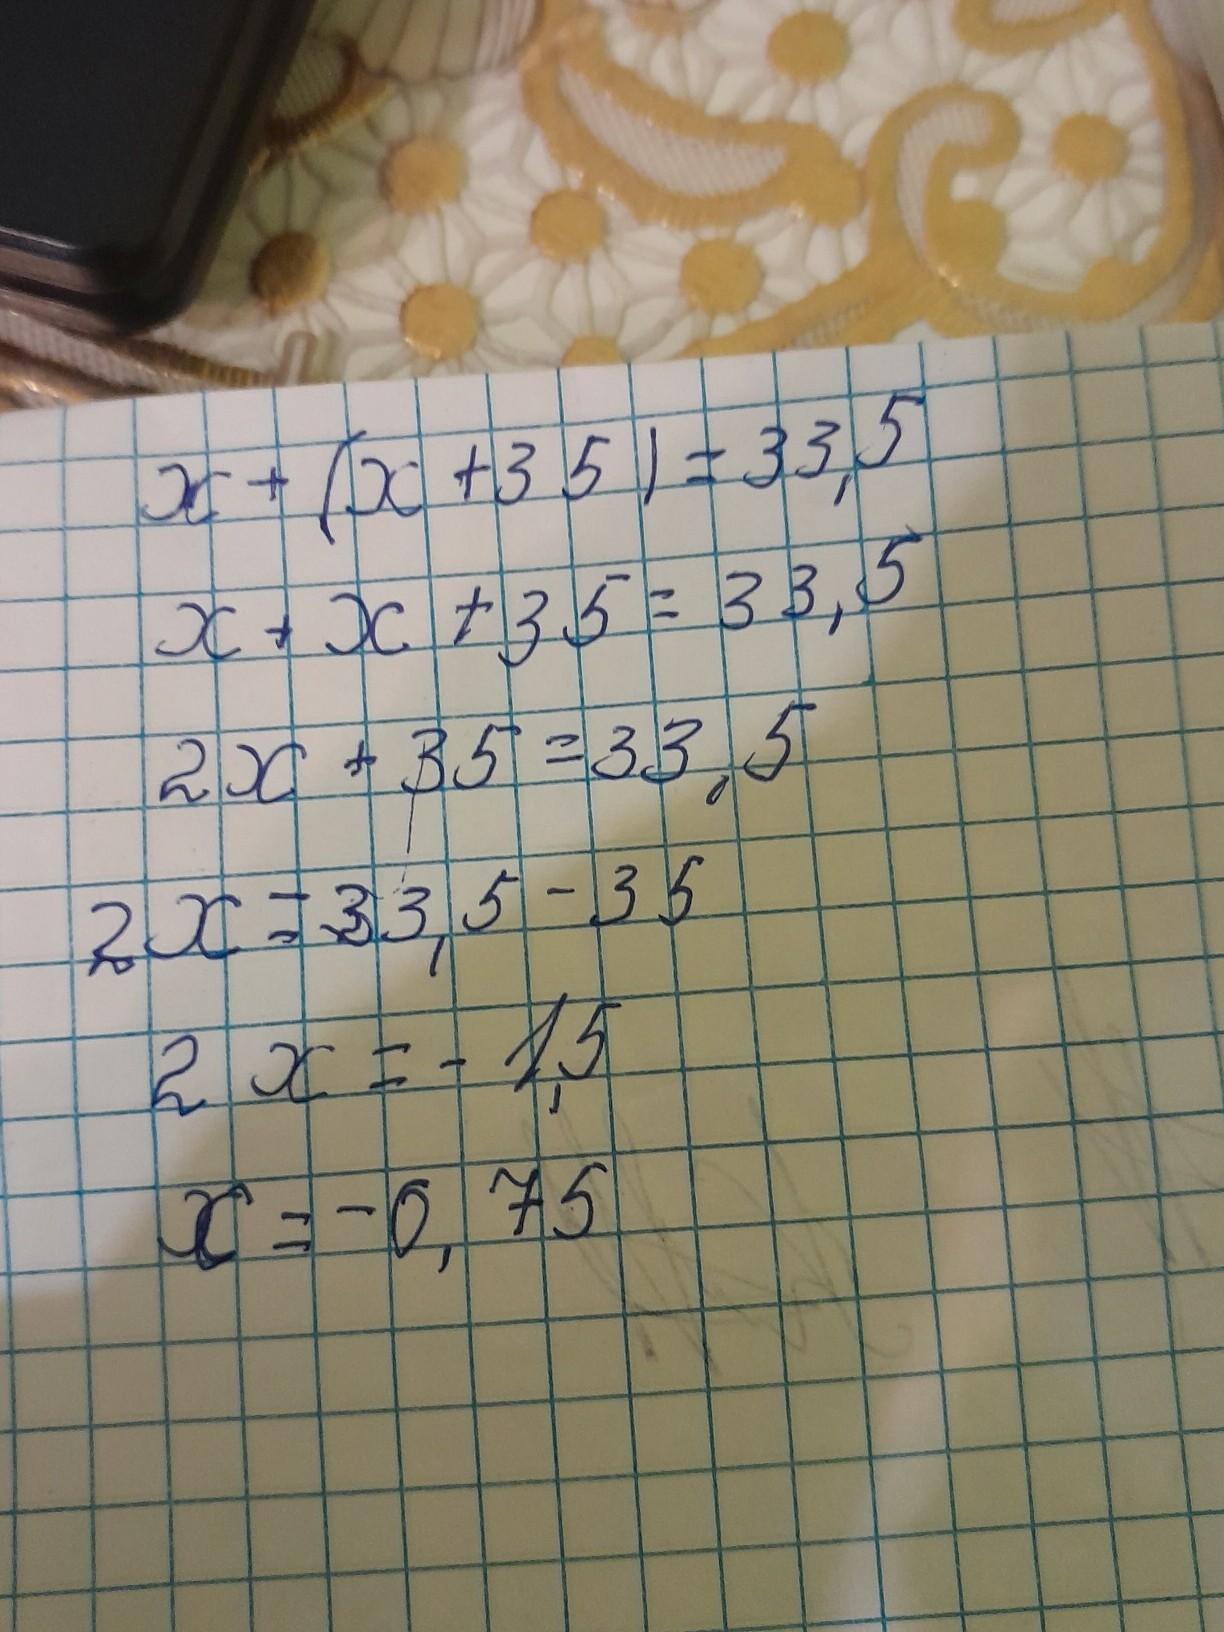 x + (x + 35) = 33,5
x + x + 35 = 33,5
2x + 35 = 33,5
2x = 33,5 - 35
2x = - 1,5
x = -0,75